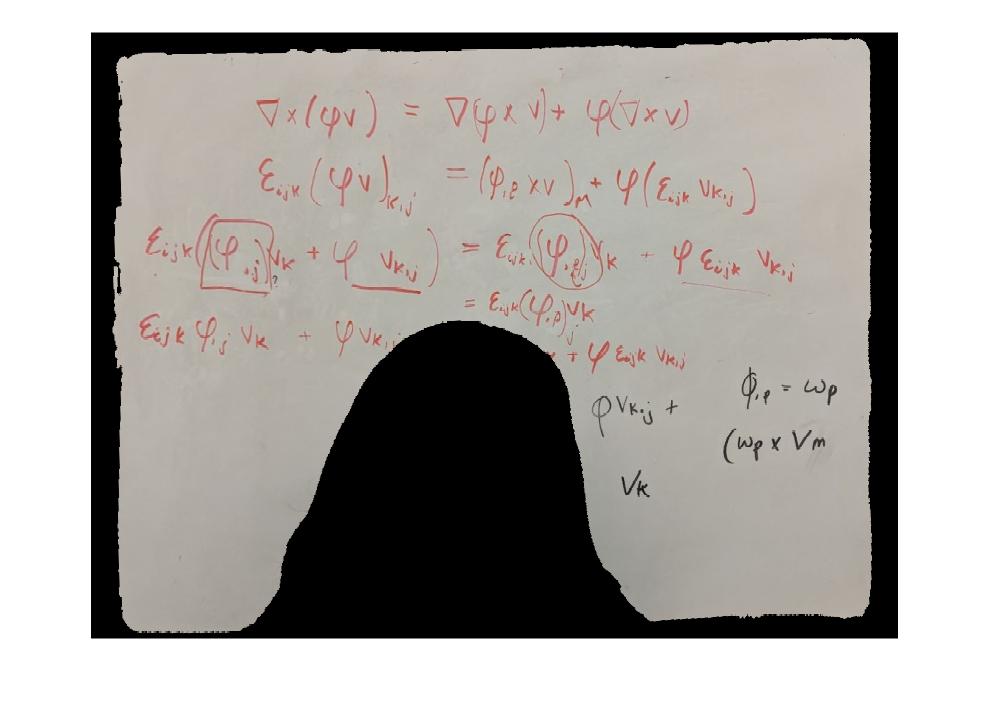 ∇×(φv) = ∇(φ×v)+ φ(∇×v)
εijk (φv)k,j = (φ,p ×v)m + φ(εijk vk,j)
εijk((φ,j)vk + φ vk,j) = εijk((φ,p)j)vk + φ εijk vk,j
?
= εijk(φ,p)j vk
εijk φ,j vk + φ vk,j
+ φ εijk vk,j
φ vk,j +
ϕ,p = wp
(wp × Vm
Vk